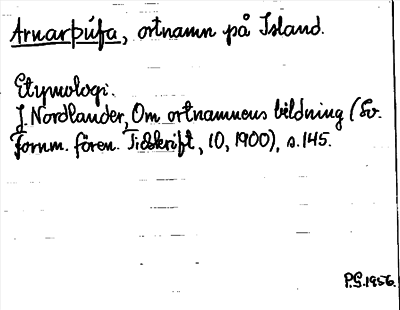 Arnarþúfa, ortnamn på Island.
Etymologi:
J. Nordlander, Om ortnamnens bildning (Sv.
fornm. fören. Tidskrift, 10, 1900), s. 145.
P.G. 1956.